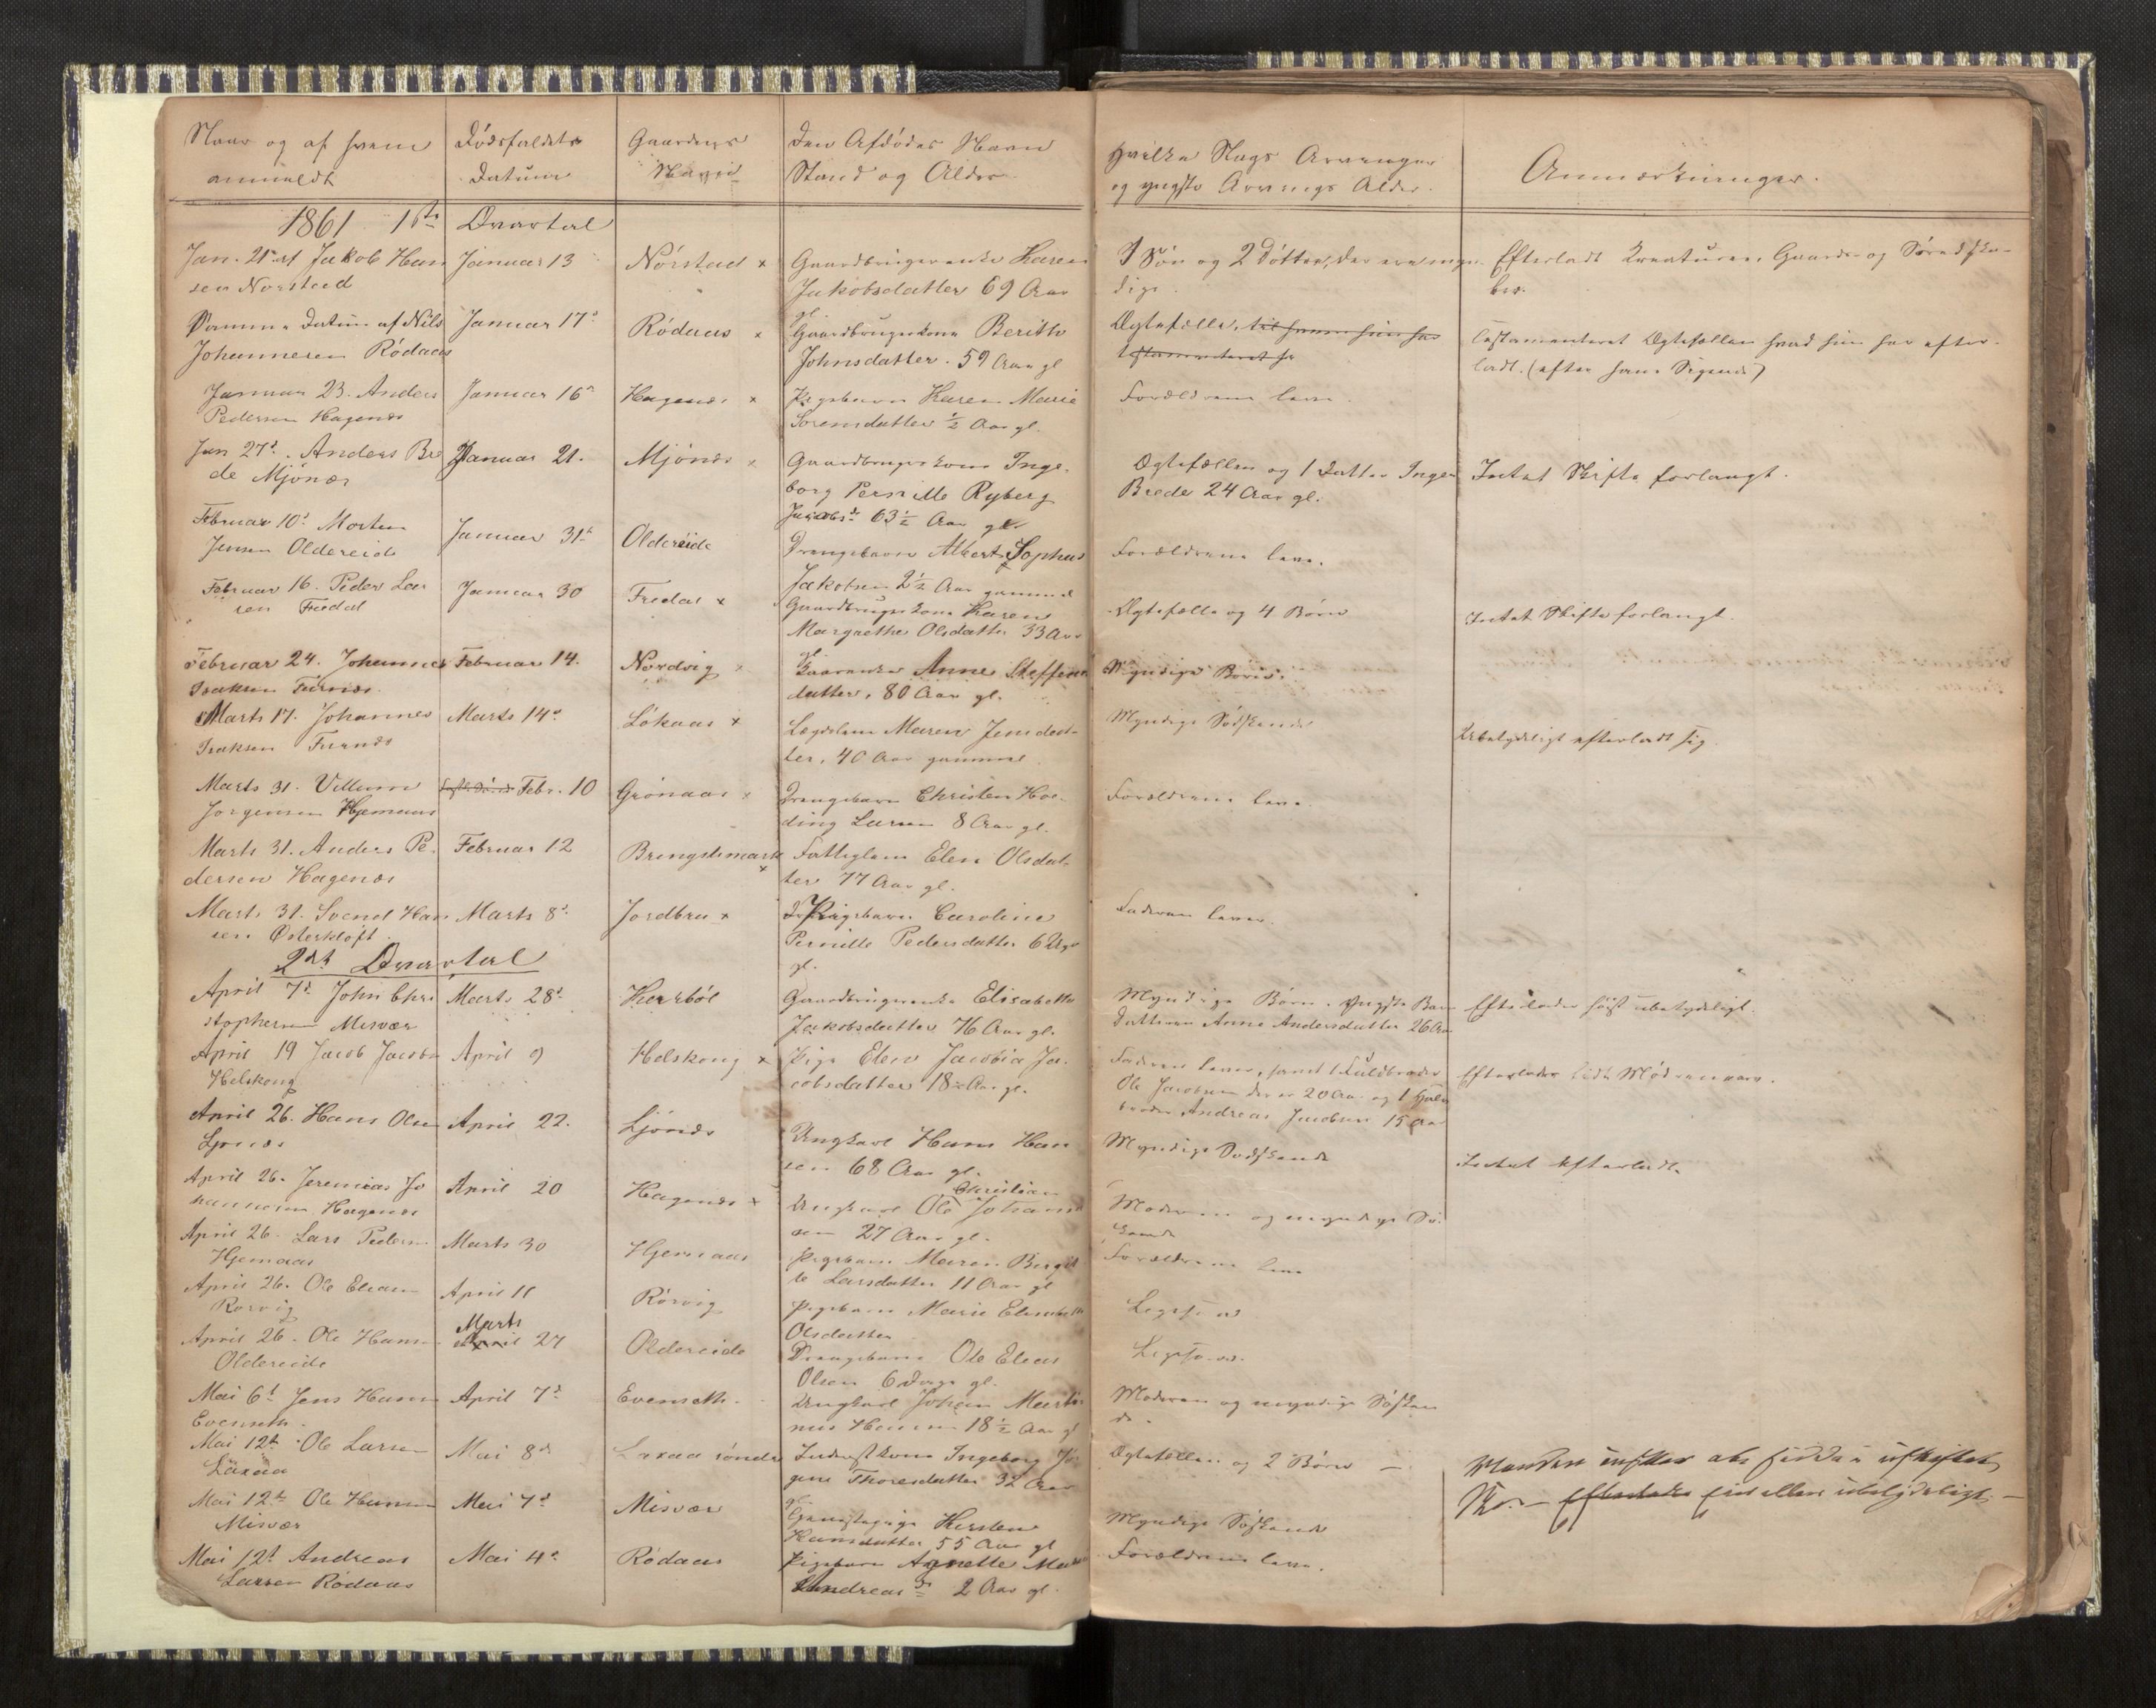 Naar og af hvem
anmeldt
Dödsfaldets
Datum
Gaardens
Navn
Den Afdödes Navn
Stand og Alder
Hvilke Slags Arvinger
og yngste Arvings Alder.
Anmærkninger.
1861 1ste Qvartal
Jan. 21de af Jakob Han
sen Norstad
Januar 13
Nörstad x
Gaardbrugerenke Karen
Jakobsdatter 69 Aar
gl.
1 Sön og 2 Döttre, der ere myn-
dige.
Efterladt Kreaturer, Gaards- og Söredska-
ber.
Samme Datum af Nils
Johannesen Rödaas
Januar 17d
Rödaas x
Gaardbrugerkone Berith
Johnsdatter. 59 Aar gl
Ægtefælle, til hvem hun har
testamenteret
Testamenteret Ægtefællen hvad hun har efter-
ladt. (efter hans Sigende)
Januar 23. Anders
Pedersen Hagenæs
Januar 16d
Hagenæs x
Pigebarn Karen Marie
Sörensdatter ½ Aar gl.
Forældrene leve.
Jan 27d. Anders Bre
de Mjönæs
Januar 21.
Mjönæs x
Gaardbrugerkone Inge-
borg Pernille Ryberg
Jacobsd. 63½ Aar gl.
Ægtefællen og 1 Datter Inger
Brede 24 Aar gl.
Intet Skifte forlangt.
Februar 10d Morten
Jensen Oldereide
Januar 31te
Oldereide
Drengebarn Albert Sophus
Jakobsen 2½ Aar gammel
Forældrene leve.
Februar 16. Peder Lar
sen Fredal
Januar 30
Fredal x
Gaardbrugerkone Karen
Margrethe Olsdatter 33 Aar
gl.
Ægtefælle og 4 Börn
Intet Skifte forlangt.
Februar 24. Johannes
Isaksen Furnæs.
Februar 14.
Nordvig x
Kaarenke Anne Steffens
datter, 80 Aar gl.
Myndige Börn.
Marts 17. Johannes
Isaksen Furnæs
Marts 14d
Lökaas x
Lægdslem Maren Jensdat-
ter, 40 Aar gammel
Myndige Södskende
Ubetydeligt efterladt sig.
Marts 31. Villum
Jörgensen Hjemaas
Febr. 10
Grönaas x
Drengebarn Christen Hve-
ding Larsen 8 Aar gl.
Forældrene leve.
Marts 31. Anders Pe-
dersen Hagenæs
Februar 12
Bringslimark
x
Fattiglem Elen Olsdat-
ter 77 Aar gl.
Marts 31. Svend Han
sen Österklöft
Marts 8d
Jordbru x
Pigebarn Caroline
Pernille Pedersdatter 6 Uger
gl.
Faderen lever.
2det Qvartal
April 7d John Chri
stophersen Misvær
Marts 28d
Kurrböl
Gaardbrugerenke Elisabeth
Jakobsdatter 76 Aar gl.
Myndige Börn. Yngste Barn
Datteren Anne Andersdatter 26 Aar
Efterlader höist ubetydeligt.
April 19 Jacob Jacobsen
Helskong
April 9
Helskong x
Pige Elen Jacobia Ja-
cobsdatter 18 Aar gl.
Faderen lever, samt 1 Fuldbroder
Ole Jacobsen der er 20 Aar og 1 Halv
broder Andreas Jacobsen 15 Aar
Efterlader lidt Mödrenearv.
April 26. Hans Olsen
Ljönæs
April 22.
Ljönæs
Ungkarl Hans Han
sen 68 Aar gl.
Myndige Södskende
Intet efterladt.
April 26. Jeremias Jo
hannesen Hagenæs
April 20
Hagenæs x
Ungkarl Ole Christian Johann
sen 27 Aar gl.
Moderen og myndige Sö-
skende
April 26. Lars Pedersen
Hjemaas
Marts 30
Hjemaas
Pigebarn Maren Birgit
te Larsdatter 11 Aar gl
Forældrene leve
April 26. Ole Eliasen
Rörvig
April 11
Rörvig
Pigebarn Marie Elisabeth
Olsdatter
Ligesaa.
April 26. Ole Hansen
Oldereide
Marts
April 27
Oldereide
Drengebarn Ole Elias
Olsen 6 Dage gl.
Ligesaa.
Mai 6d Jens Hansen
Evenseth.
April 7d
Evenseth.
Ungkarl Johan Marti
nus Hansen 18½ Aar gl
Moderen og myndige Sösken
de.
Mai 12te Ole Larsen
Laxaa
Mai 8d
Laxaa söndre
Inderstkone Ingeborg Jör
gine Thoresdatter 32 Aar
gl.
Ægtefællen og 2 Börn —
Manden önsker at sidde i uskiftet
Bo. — Efterlader ubetydeligt —
Mai 12te Ole Hansen
Misvær
Mai 7d
Misvær
Kirsten
Hansdatter 55 Aar gl
Myndige Söskende
Mai 12t Andreas
Larsen Rödaas
Mai 4d
Rödaas
Pigebarn Agnette
Andreasd. 2 Aar gl.
Forældrene leve.